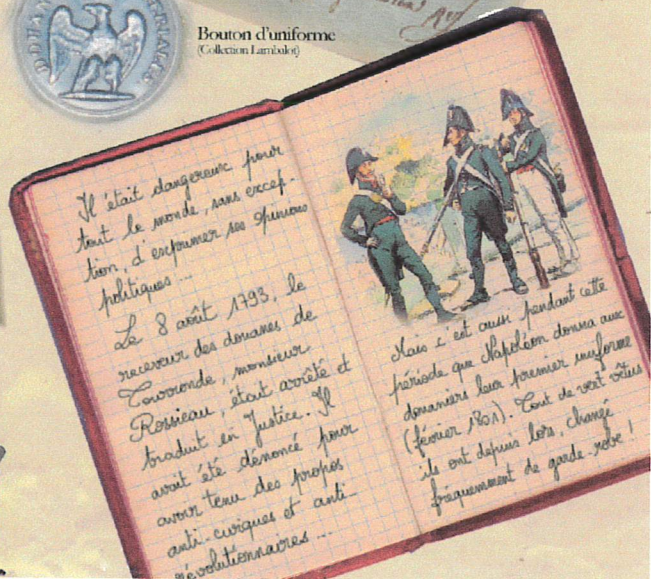 Bouton d'uniforme
(Collection Lambalot)
Il était dangereux pour
tout le monde, sans excep-
tion, d'exprimer ses opinions
politiques ...
Le 8 août 1793, le
receveur des douanes de
Rossieau, était arrêté et
traduit en Justice. Il
avait été dénoncé pour
avoir tenu des propos
anti-civiques et anti-
révolutionnaires ...
Mais c'est aussi pendant cette
période que Napoléon donna aux
douaniers leur premier uniforme
(février 1801). Tout de vert vêtus
ils ont depuis lors, changé
fréquemment de garde-robe !